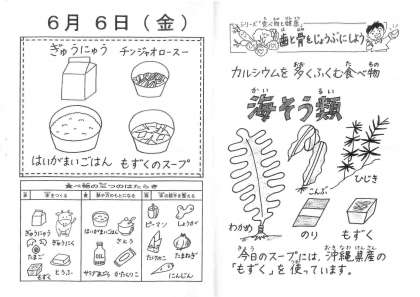 6月 6日（金）
ぎゅうにゅう
チンジャオロースー
はいがまいごはん
もずくのスープ
食べ物の三つのはたらき
ぎゅうにゅう
ぎゅうにく
たまご
とうふ
みそ
はいがまいごはん
さとう
サラダあぶら
かたくりこ
ピーマン
しょうが
たけのこ
たまねぎ
にんじん
シリーズ「食べ物と健康」
歯と骨をじょうぶにしよう
カルシウムを多くふくむ食べ物
かい るい
海そう類
わかめ
こんぶ
ひじき
のり
もずく
きょう おきなわけんさん
今日のスープには、沖縄県産の
つか
「もずく」を使っています。